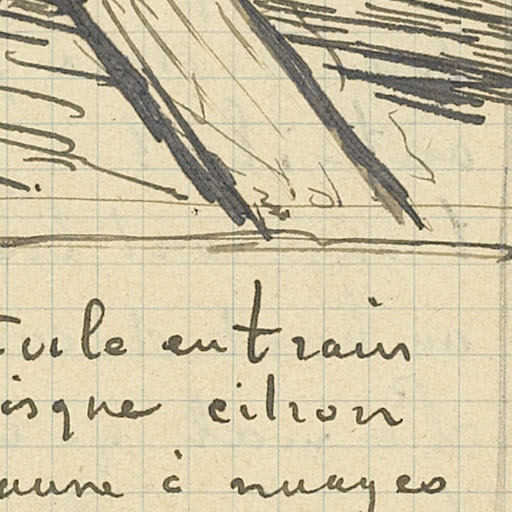 tuile en train
isque citron
aune à nuages